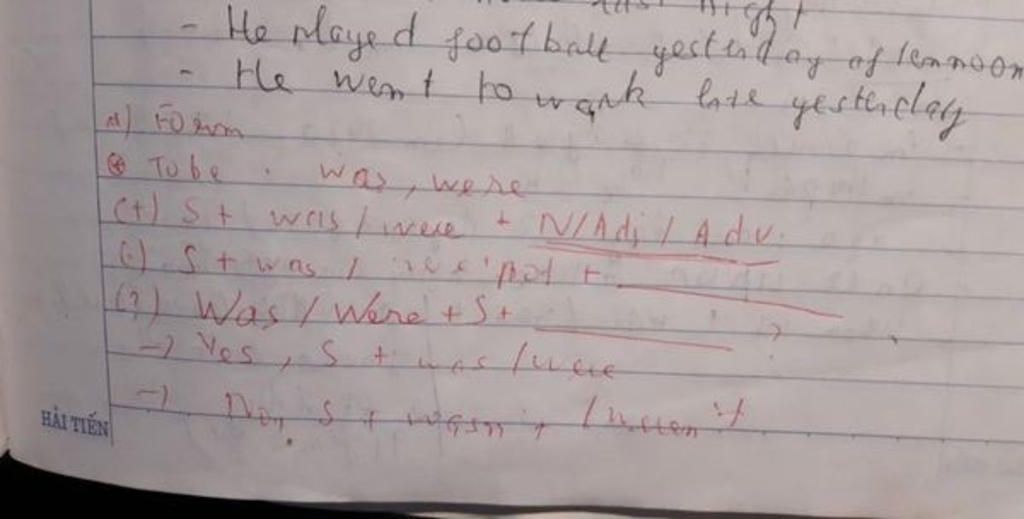 last night
- He played football yesterday afternoon
- He went to work late yesterday
a) Form
* To be . was, were
(+) S + was / were + N/Adj / Adv.
(-) S + was / were not + ______
(?) Was / Were + S + ______ ?
-> Yes, S + was / were
-> No, S + wasn't / weren't
HẢI TIẾN